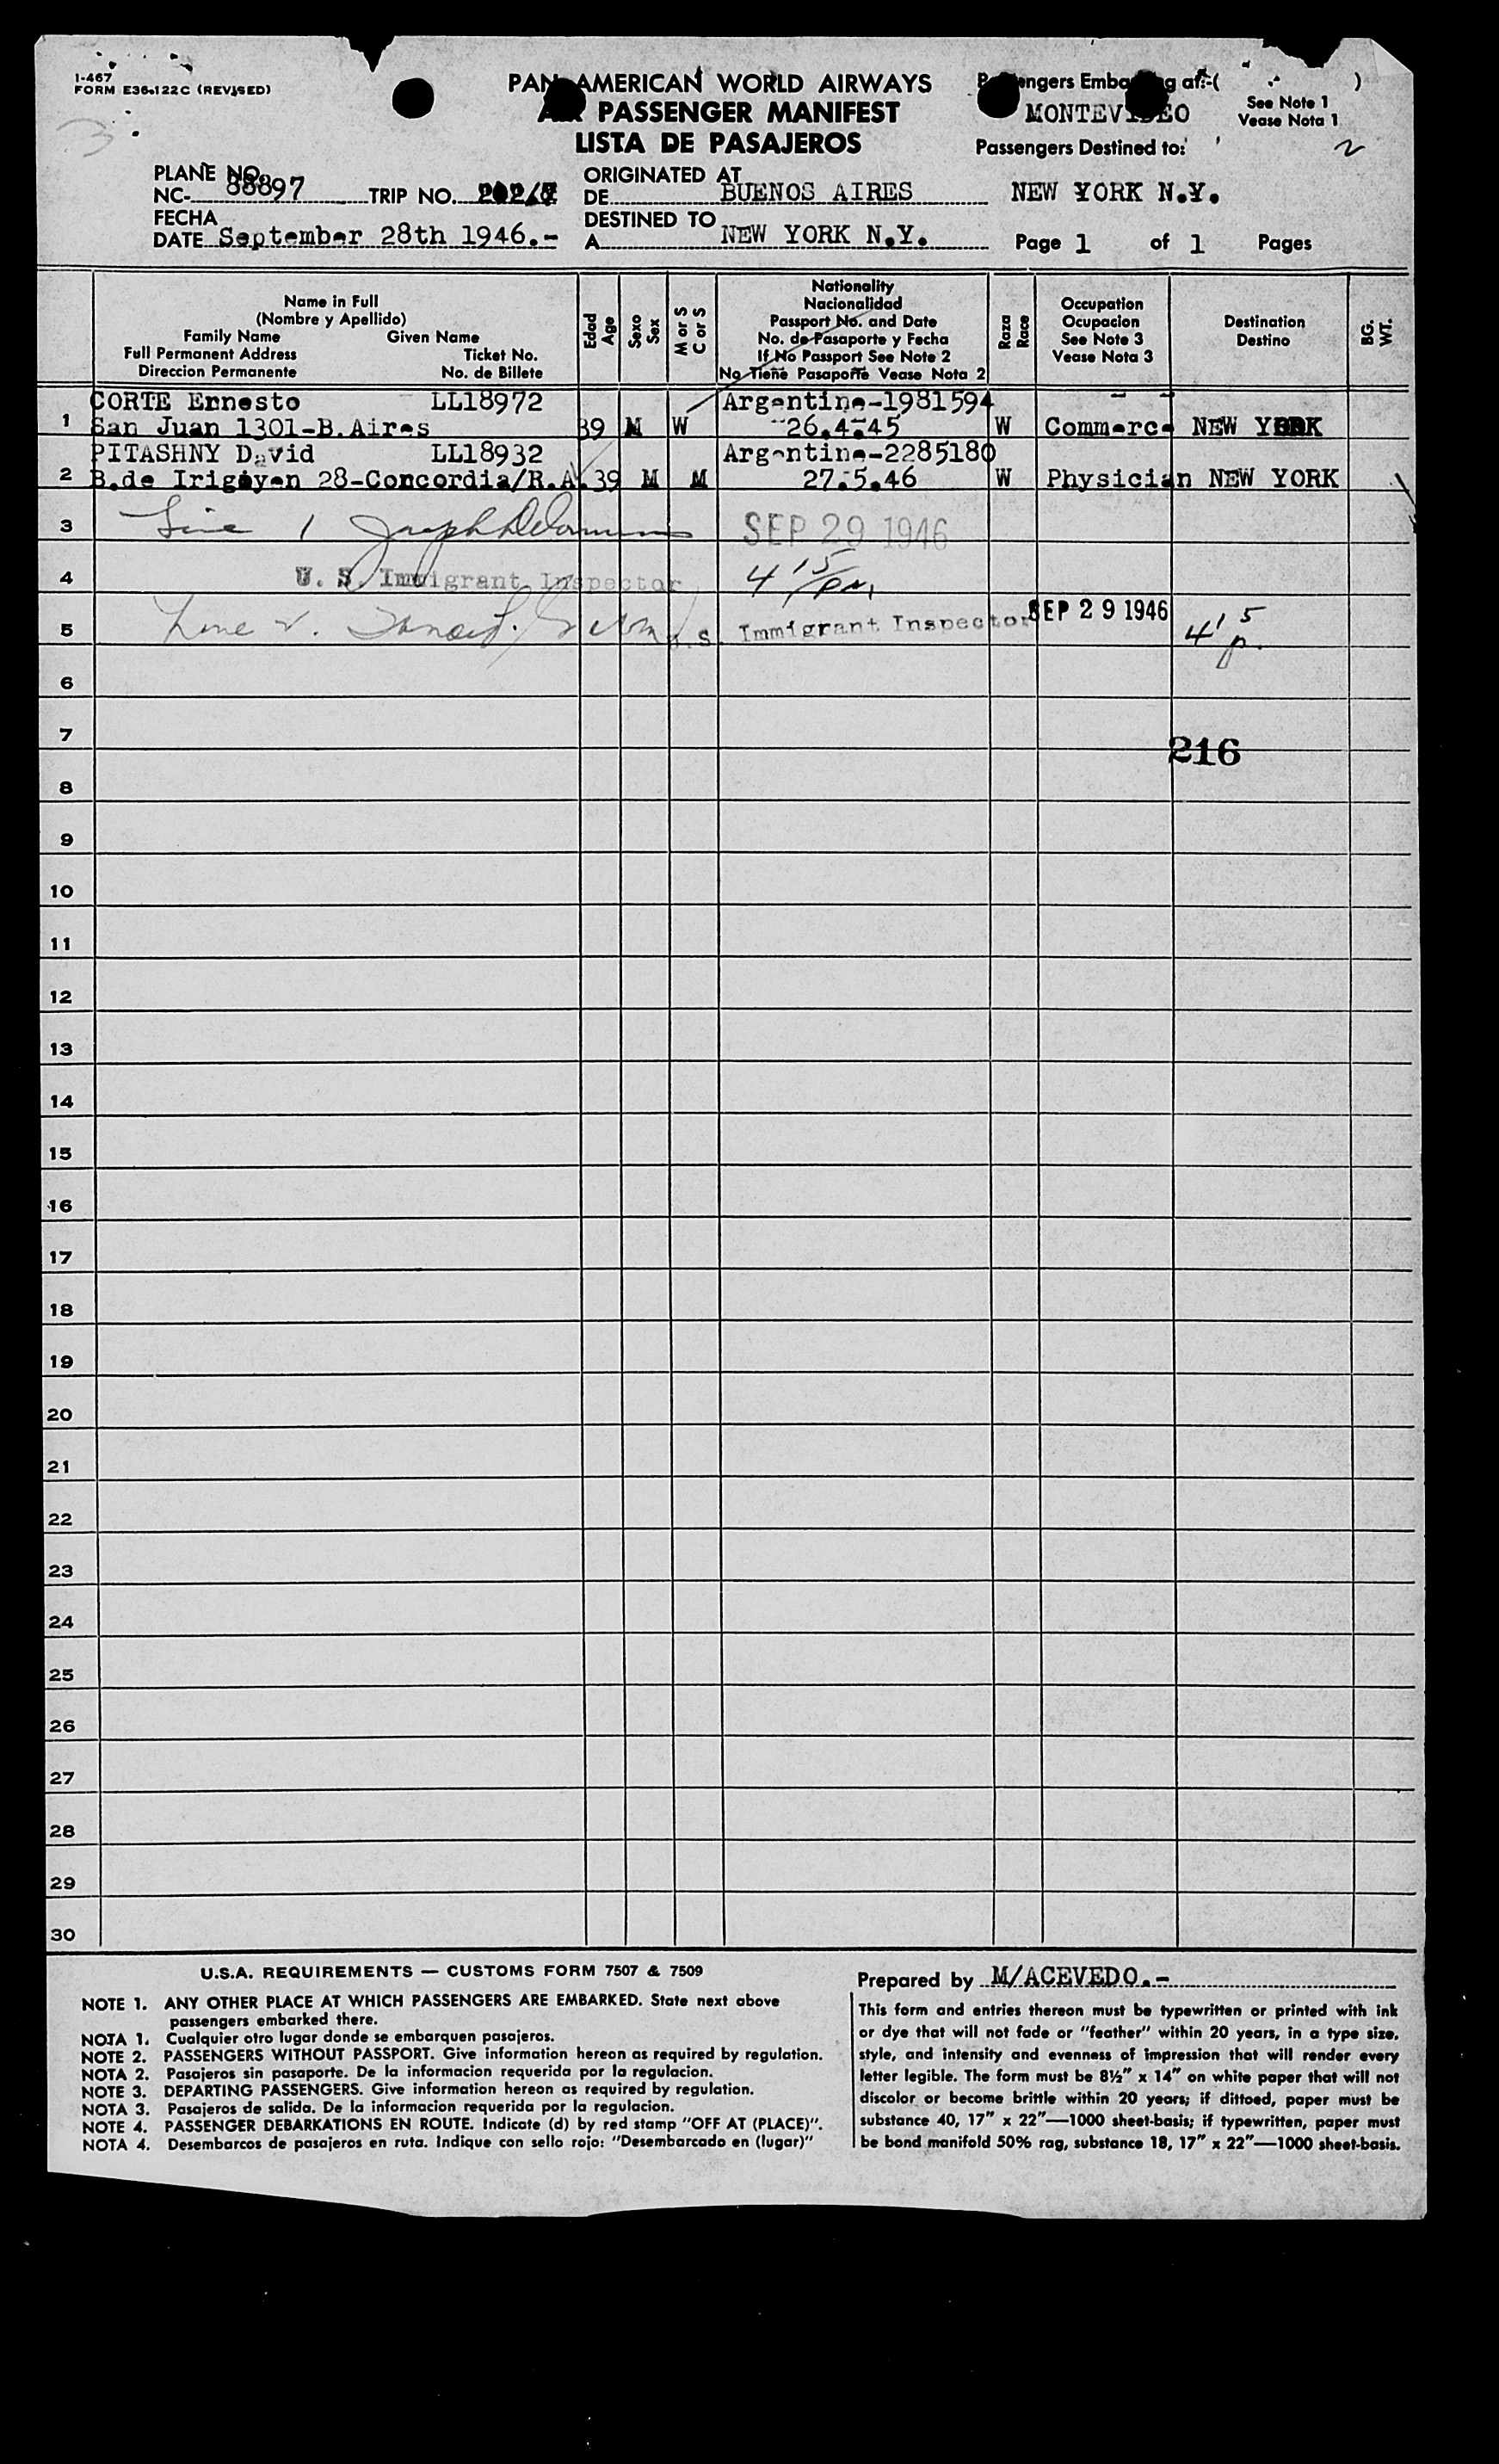 I-467
FORM E36-122C (REVISED)
PAN AMERICAN WORLD AIRWAYS
AIR PASSENGER MANIFEST
LISTA DE PASAJEROS
Passengers Embarking at:-( )
See Note 1
Vease Nota 1
MONTEVIDEO
Passengers Destined to:
2
NEW YORK N.Y.
PLANE NO.
NC- 88897 TRIP NO. 202/
FECHA
DATE September 28th 1946.-
ORIGINATED AT
DE BUENOS AIRES
DESTINED TO
A NEW YORK N.Y.
Page 1 of 1 Pages
Name in Full
(Nombre y Apellido)
Family Name Given Name
Full Permanent Address Ticket No.
Direccion Permanente No. de Billete
Edad
Age
Sexo
Sex
M or S
C or S
Nationality
Nacionalidad
Passport No. and Date
No. de Pasaporte y Fecha
If No Passport See Note 2
No Tiene Pasaporte Vease Nota 2
Raza
Race
Occupation
Ocupacion
See Note 3
Vease Nota 3
Destination
Destino
BG.
WT.
CORTE Ernesto LL18972 Argentine-1981594
1 San Juan 1301-B.Aires 39 M W 26.4.45 W Commerce NEW YORK
PITASHNY David LL18932 Argentine-2285180
2 B.de Irigoyen 28-Concordia/R.A. 39 M M 27.5.46 W Physician NEW YORK
3 Line 1 Joseph SEP 29 1946
4 U. S. Immigrant Inspector 4 15 pm
5 Line 2. U. S. Immigrant Inspector SEP 29 1946 4 15 p.
6
7 216
8
9
10
11
12
13
14
15
16
17
18
19
20
21
22
23
24
25
26
27
28
29
30
U.S.A. REQUIREMENTS — CUSTOMS FORM 7507 & 7509
NOTE 1. ANY OTHER PLACE AT WHICH PASSENGERS ARE EMBARKED. State next above
passengers embarked there.
NOTA 1. Cualquier otro lugar donde se embarquen pasajeros.
NOTE 2. PASSENGERS WITHOUT PASSPORT. Give information hereon as required by regulation.
NOTA 2. Pasajeros sin pasaporte. De la informacion requerida por la regulacion.
NOTE 3. DEPARTING PASSENGERS. Give information hereon as required by regulation.
NOTA 3. Pasajeros de salida. De la informacion requerida por la regulacion.
NOTE 4. PASSENGER DEBARKATIONS EN ROUTE. Indicate (d) by red stamp "OFF AT (PLACE)".
NOTA 4. Desembarcos de pasajeros en ruta. Indique con sello rojo: "Desembarcado en (lugar)"
Prepared by M/ACEVEDO.-
This form and entries thereon must be typewritten or printed with ink
or dye that will not fade or "feather" within 20 years, in a type size,
style, and intensity and evenness of impression that will render every
letter legible. The form must be 8½" x 14" on white paper that will not
discolor or become brittle within 20 years; if dittoed, paper must be
substance 40, 17" x 22"—1000 sheet-basis; if typewritten, paper must
be bond manifold 50% rag, substance 18, 17" x 22"—1000 sheet-basis.